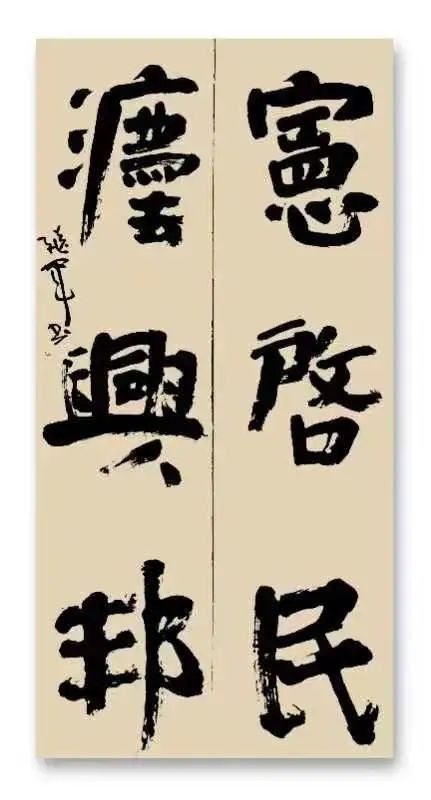 憲啓民
灋興邦